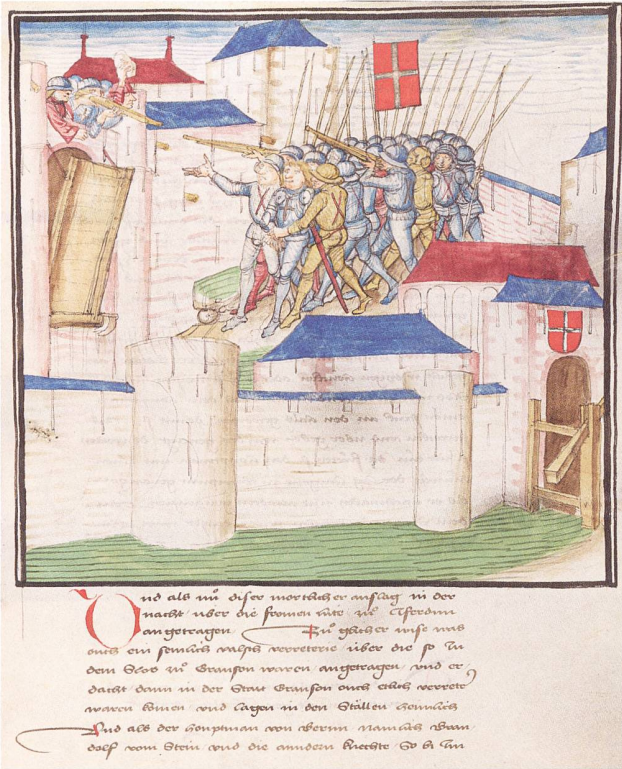 Und als nů diser mortlicher anslag in der
nacht über die fromen lüte zů Yferdun
angetragen Zů glicher wise was
ouch ein semlich valsch verreterie über die so zu
dem Slos zů Granson waren angetragen und er
dacht dann in der Statt Granson ouch etlich verreter
waren komen und lagen in den Ställen heimlich
Und als der houptman von Bernn namlich Bran
dolf vom Stein und die anndern knechte So bi im